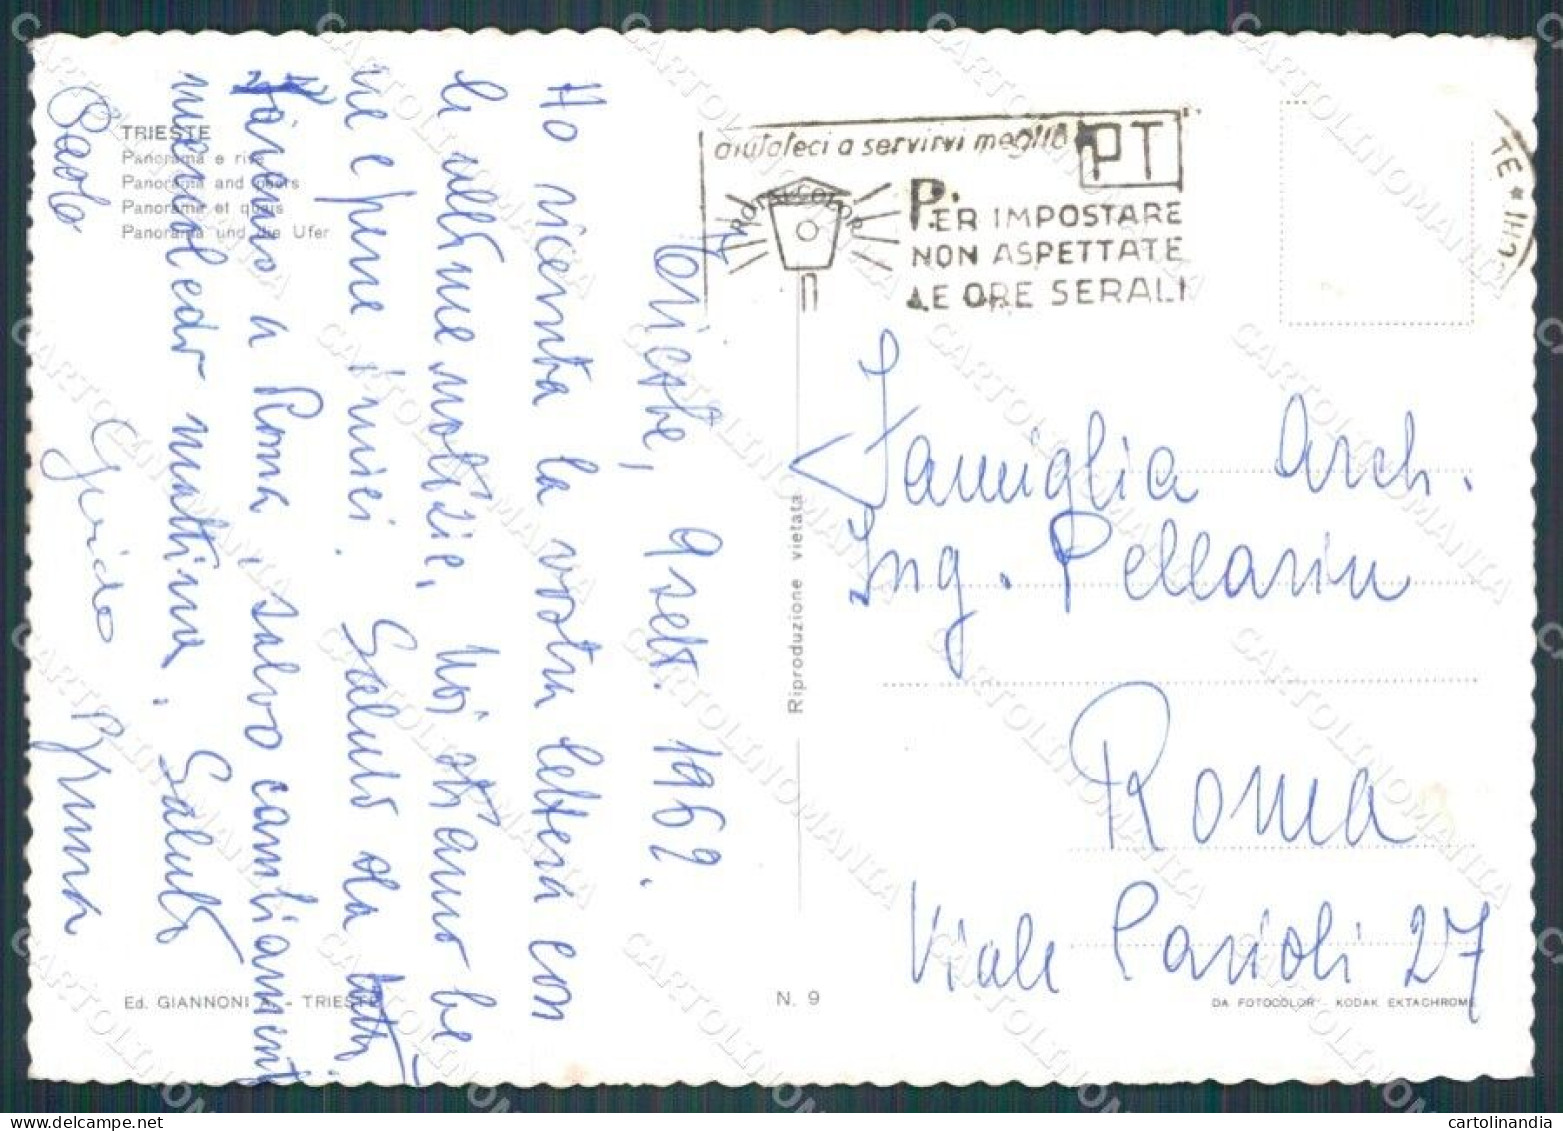 TRIESTE
Panorama e rive
Panorama and piers
Panorama et quais
Panorama und die Ufer
Trieste, 9 sett. 1962.
Ho ricevuta la vostra lettera con
le ultime notizie. Noi stiamo be
ne e pure i miei. Saluto da tutti
Saremo a Roma, salvo cambiamenti
mercoledì mattina. Saluti
Paolo Guido Bruna
Ed. GIANNONI A. - TRIESTE
N. 9
Riproduzione vietata
ROTALCOLOR
aiutateci a servirvi meglio
PT
PER IMPOSTARE
NON ASPETTATE
LE ORE SERALI
Famiglia Arch.
Ing. Pellarin
Roma
Viale Parioli 27
DA FOTOCOLOR KODAK EKTACHROME
CARTOLINOMANIA
cartolinandia